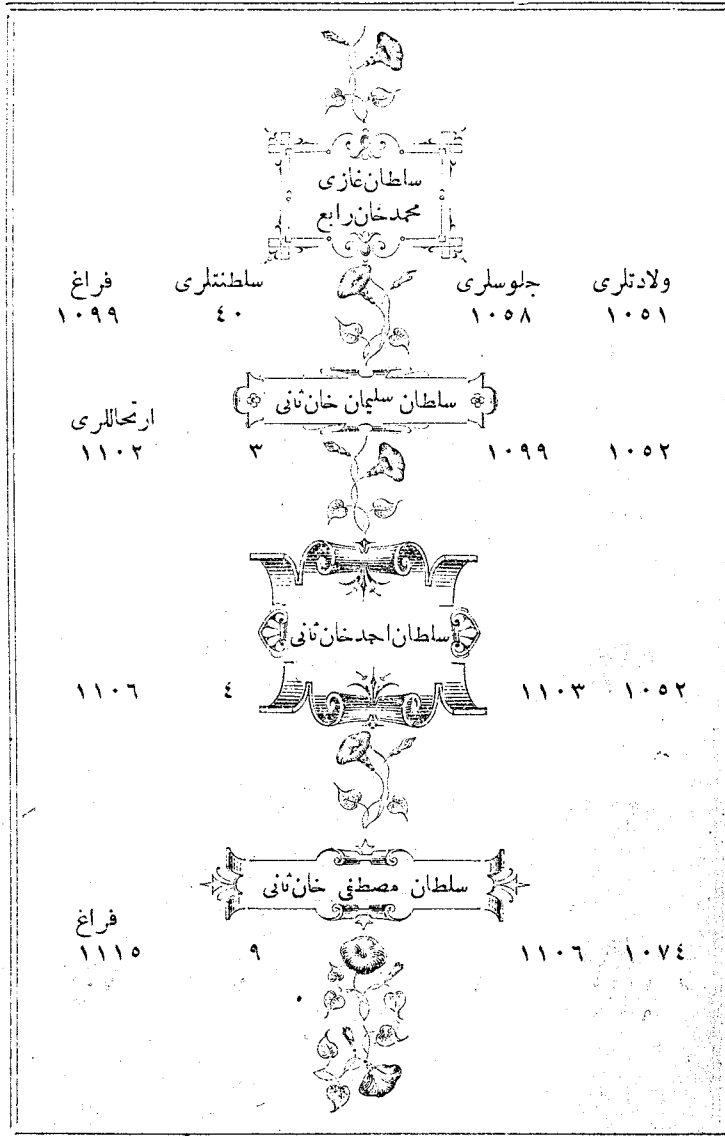 سلطان غازی
محمد خان رابع
ولادتلری جلوسلری سلطنتلری فراغ
١٠٥١ ١٠٥٨ ٤٠ ١٠٩٩
سلطان سلیمان خان ثانی
ارتحاللری
١٠٥٢ ١٠٩٩ ٣ ١١٠٢
سلطان احمد خان ثانی
١٠٥٢ ١١٠٣ ٤ ١١٠٦
سلطان مصطفی خان ثانی
فراغ
١٠٧٤ ١١٠٦ ٩ ١١١٥